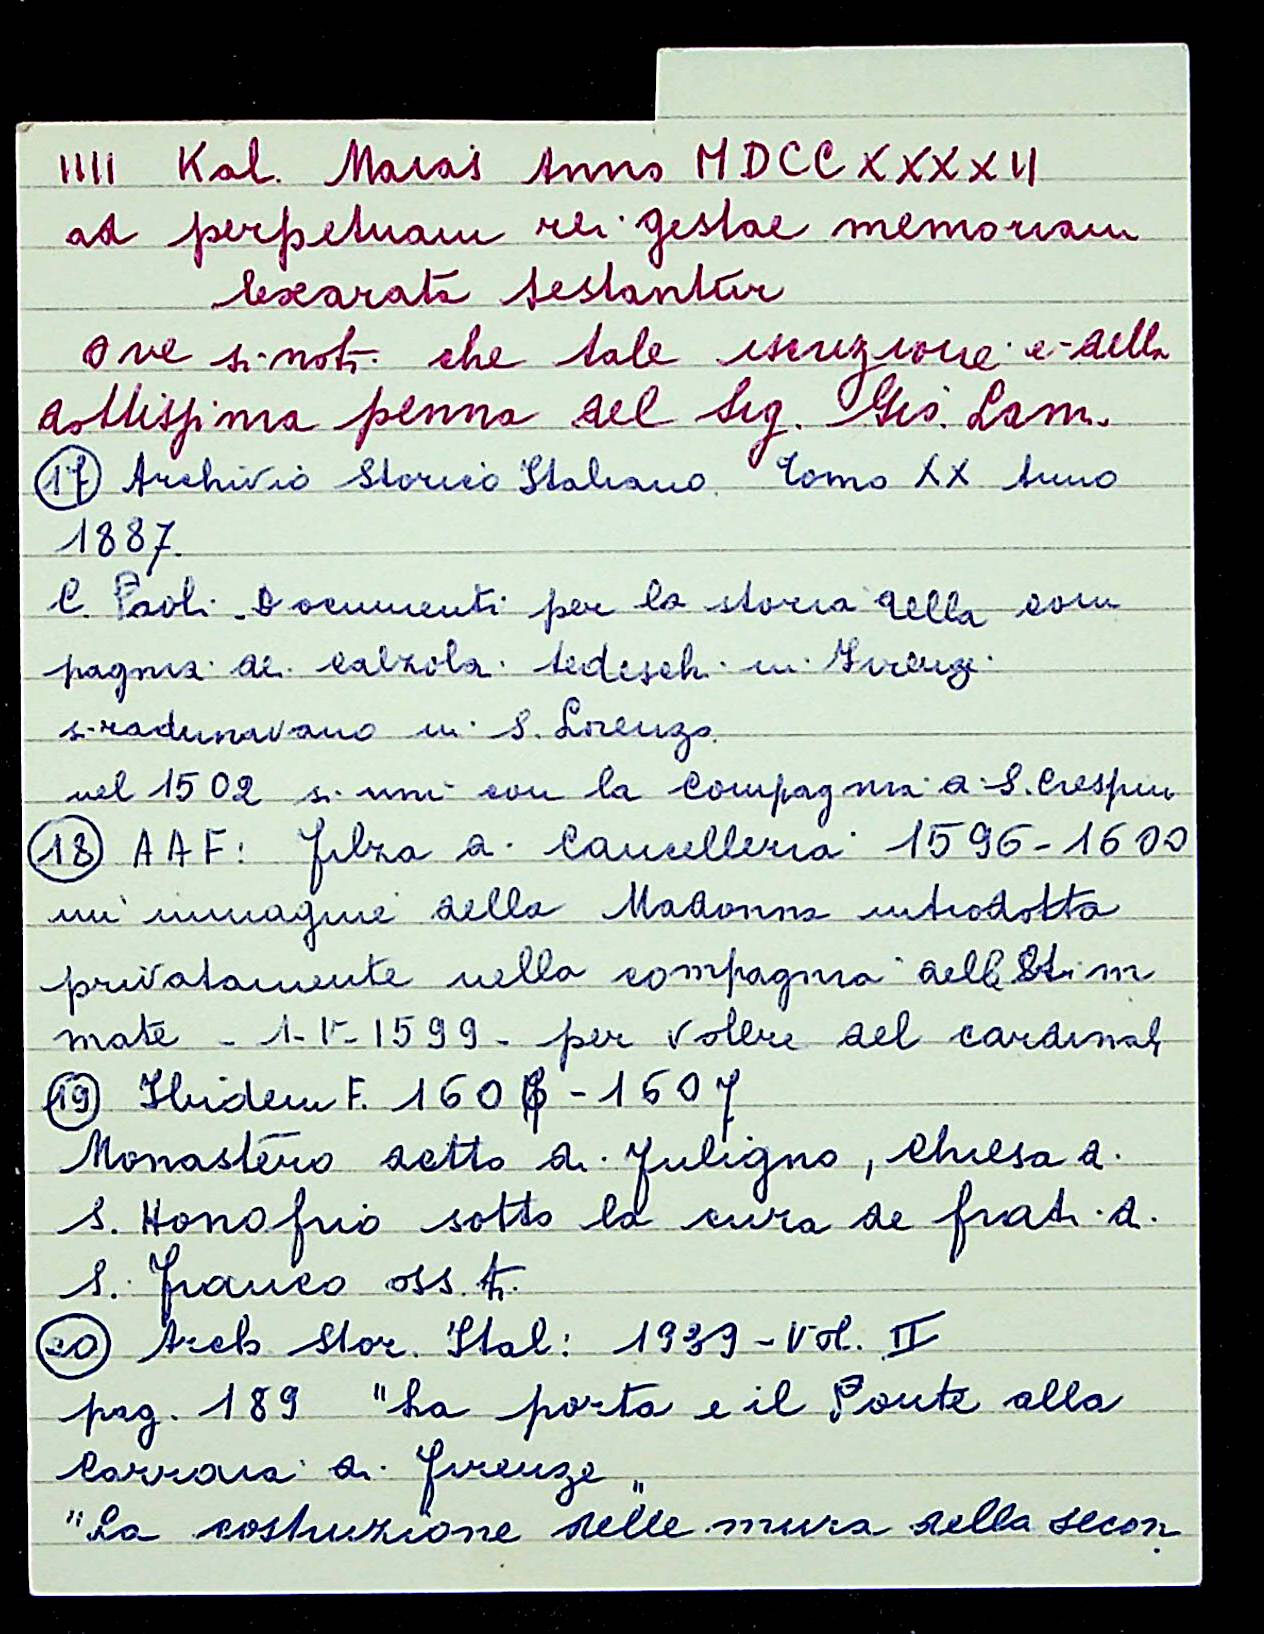 IIII Kal. Maias Anno MDCCXXXXII
ad perpetuam rei gestae memoriam
exarata testantur
ove si noti che tale iscrizione è della
dottissima penna del Sig. Gio. Lami.
17 Archivio Storico Italiano. Tomo XX Anno
1887.
C. Paoli. Documenti per la storia della com
pagnia dei calzolai tedeschi in Firenze
si radunavano in S. Lorenzo.
nel 1502 si unì con la compagnia di S. Crespino
18 AAF: filza di Cancelleria 1596-1600
un'immagine della Madonna introdotta
privatamente nella compagnia delle Stim
mate - 1-V-1599 - per volere del cardinale
19 Ibidem F. 1606-1607
Monastero detto di Fuligno, Chiesa di
S. Honofrio sotto la cura de frati di
S. Franco oss.ti.
20 Arch Stor. Ital: 1939 - Vol. II
pag. 189 "La porta e il Ponte alla
Carraia di Firenze"
"La costruzione delle mura della secon